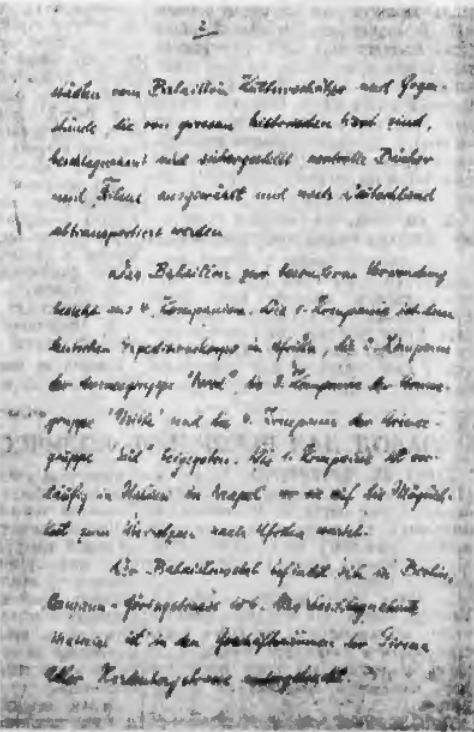 2
städten vom Bataillon Kulturschätze und Gegen-
stände, die von grossem historischen Wert sind,
beschlagnahmt und sichergestellt wertvolle Bücher
und Filme ausgewählt und nach Deutschland
abtransportiert werden
Das Bataillon zur besonderen Verwendung
besteht aus 4. Kompanien. Die 1. Kompanie ist dem
deutschen Expeditionskorps in Afrika, die 2. Kompanie
der Armeegruppe "Nord", die 3. Kompanie der Armee-
gruppe "Mitte" und die 4. Kompanie der Armee-
gruppe "Süd" beigegeben. Die 1. Kompanie ist vor-
läufig in Italien in Neapel wo sie auf die Möglich-
keit zum nach Afrika wartet.
Der Bataillonsstab befindet sich in Berlin,
Hermann-Göringstrasse Das beschlagnahmte
Material ist in den Geschäftsräumen der Firma
Hardenbergstrasse untergebracht.